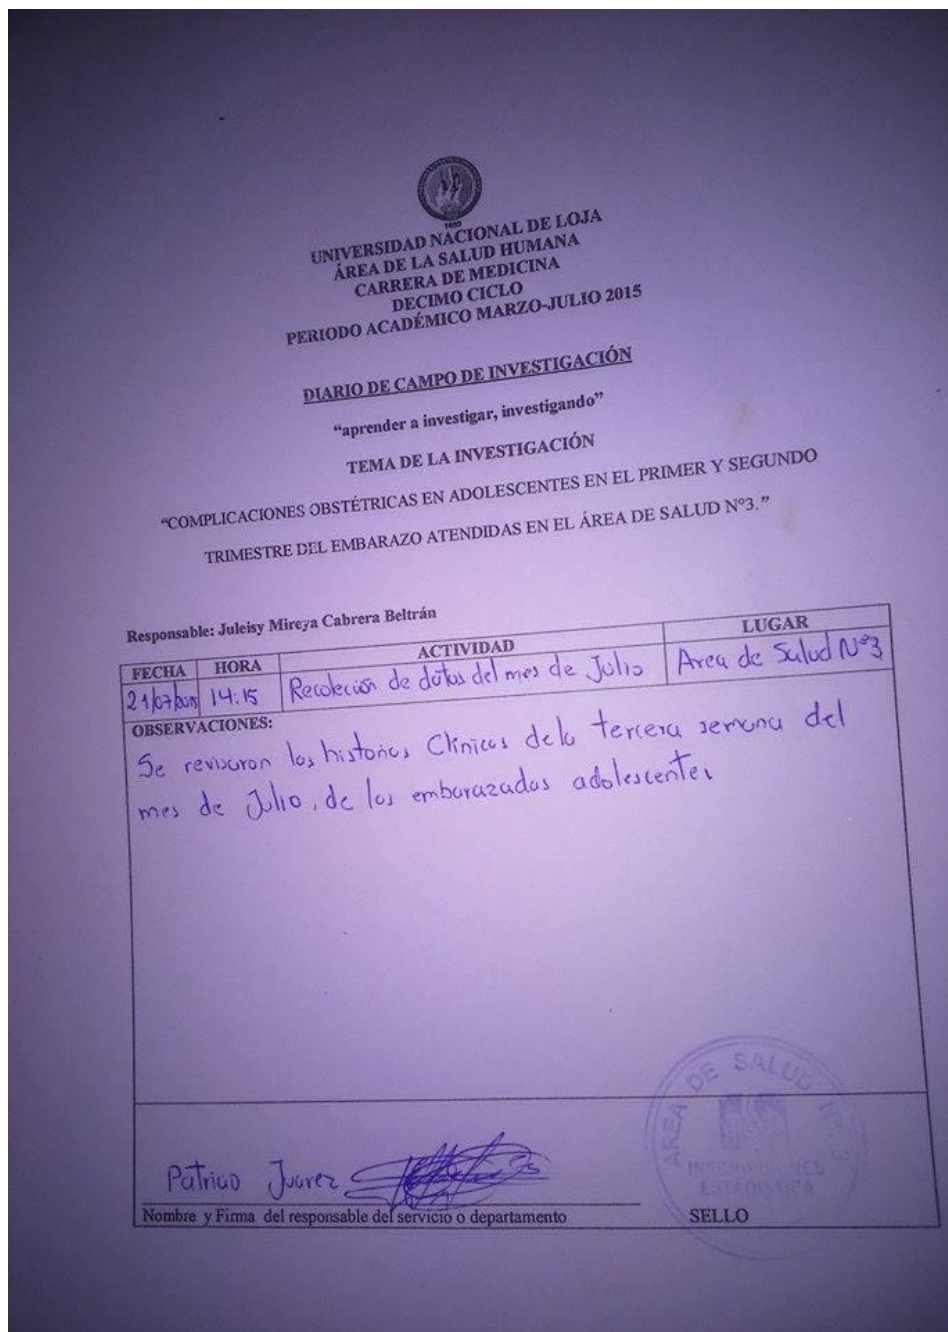 1859
UNIVERSIDAD NACIONAL DE LOJA
ÁREA DE LA SALUD HUMANA
CARRERA DE MEDICINA
DECIMO CICLO
PERIODO ACADÉMICO MARZO-JULIO 2015
DIARIO DE CAMPO DE INVESTIGACIÓN
“aprender a investigar, investigando”
TEMA DE LA INVESTIGACIÓN
“COMPLICACIONES OBSTÉTRICAS EN ADOLESCENTES EN EL PRIMER Y SEGUNDO
TRIMESTRE DEL EMBARAZO ATENDIDAS EN EL ÁREA DE SALUD Nº3.”
Responsable: Juleisy Mireya Cabrera Beltrán
FECHA HORA ACTIVIDAD LUGAR
21/07/2015 14:15 Recolección de datos del mes de Julio Area de Salud Nº3
OBSERVACIONES:
Se revisaron las historias Clínicas de la tercera semana del
mes de Julio, de las embarazadas adolescentes
AREA DE SALUD Nº 03
INSCRIPCIONES
ESTADISTICA
Patricio Juarez
Nombre y Firma del responsable del servicio o departamento SELLO